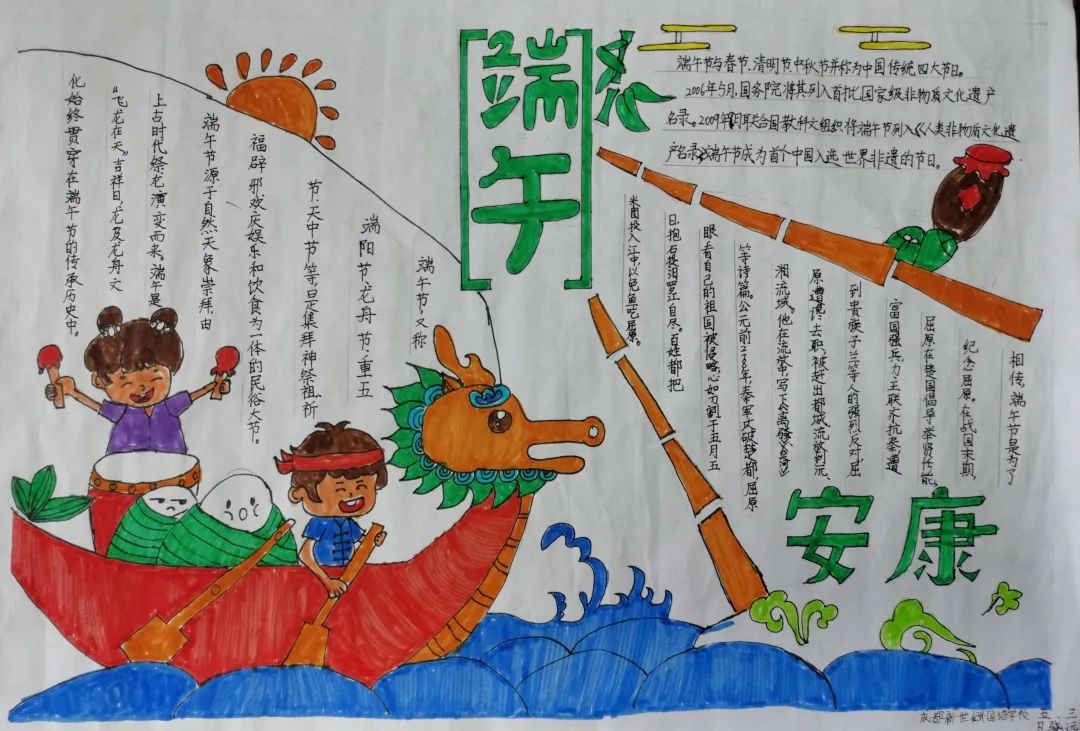 端午
安康
端午节与春节、清明节、中秋节并称为中国传统四大节日。
2006年5月,国务院将其列入首批国家级非物质文化遗产
名录。2009年9月联合国教科文组织将端午节列入《人类非物质文化遗
产名录》,端午节成为首个中国入选世界非遗的节日。
端午节,又称
端阳节、龙舟节、重五
节、天中节等,是集拜神祭祖、祈
福辟邪、欢庆娱乐和饮食为一体的民俗大节。
端午节源于自然天象崇拜,由
上古时代祭龙演变而来。端午是
“飞龙在天”吉祥日,龙及龙舟文
化始终贯穿在端午节的传承历史中。
相传,端午节是为了
纪念屈原。在战国末期,
屈原在楚国倡导举贤任能,
富国强兵,力主联齐抗秦,遭
到贵族子兰等人的强烈反对,屈
原遭谗去职,被赶出都城,流放到沅、
湘流域。他在流放中,写下《离骚》《天问》
等诗篇。公元前278年,秦军攻破楚都,屈原
眼看自己的祖国被侵略,心如刀割,于五月五
日抱石投汨罗江自尽。百姓都把
米团投入江中,以免鱼吃屈原。
成都新世纪外国语学校 五、三